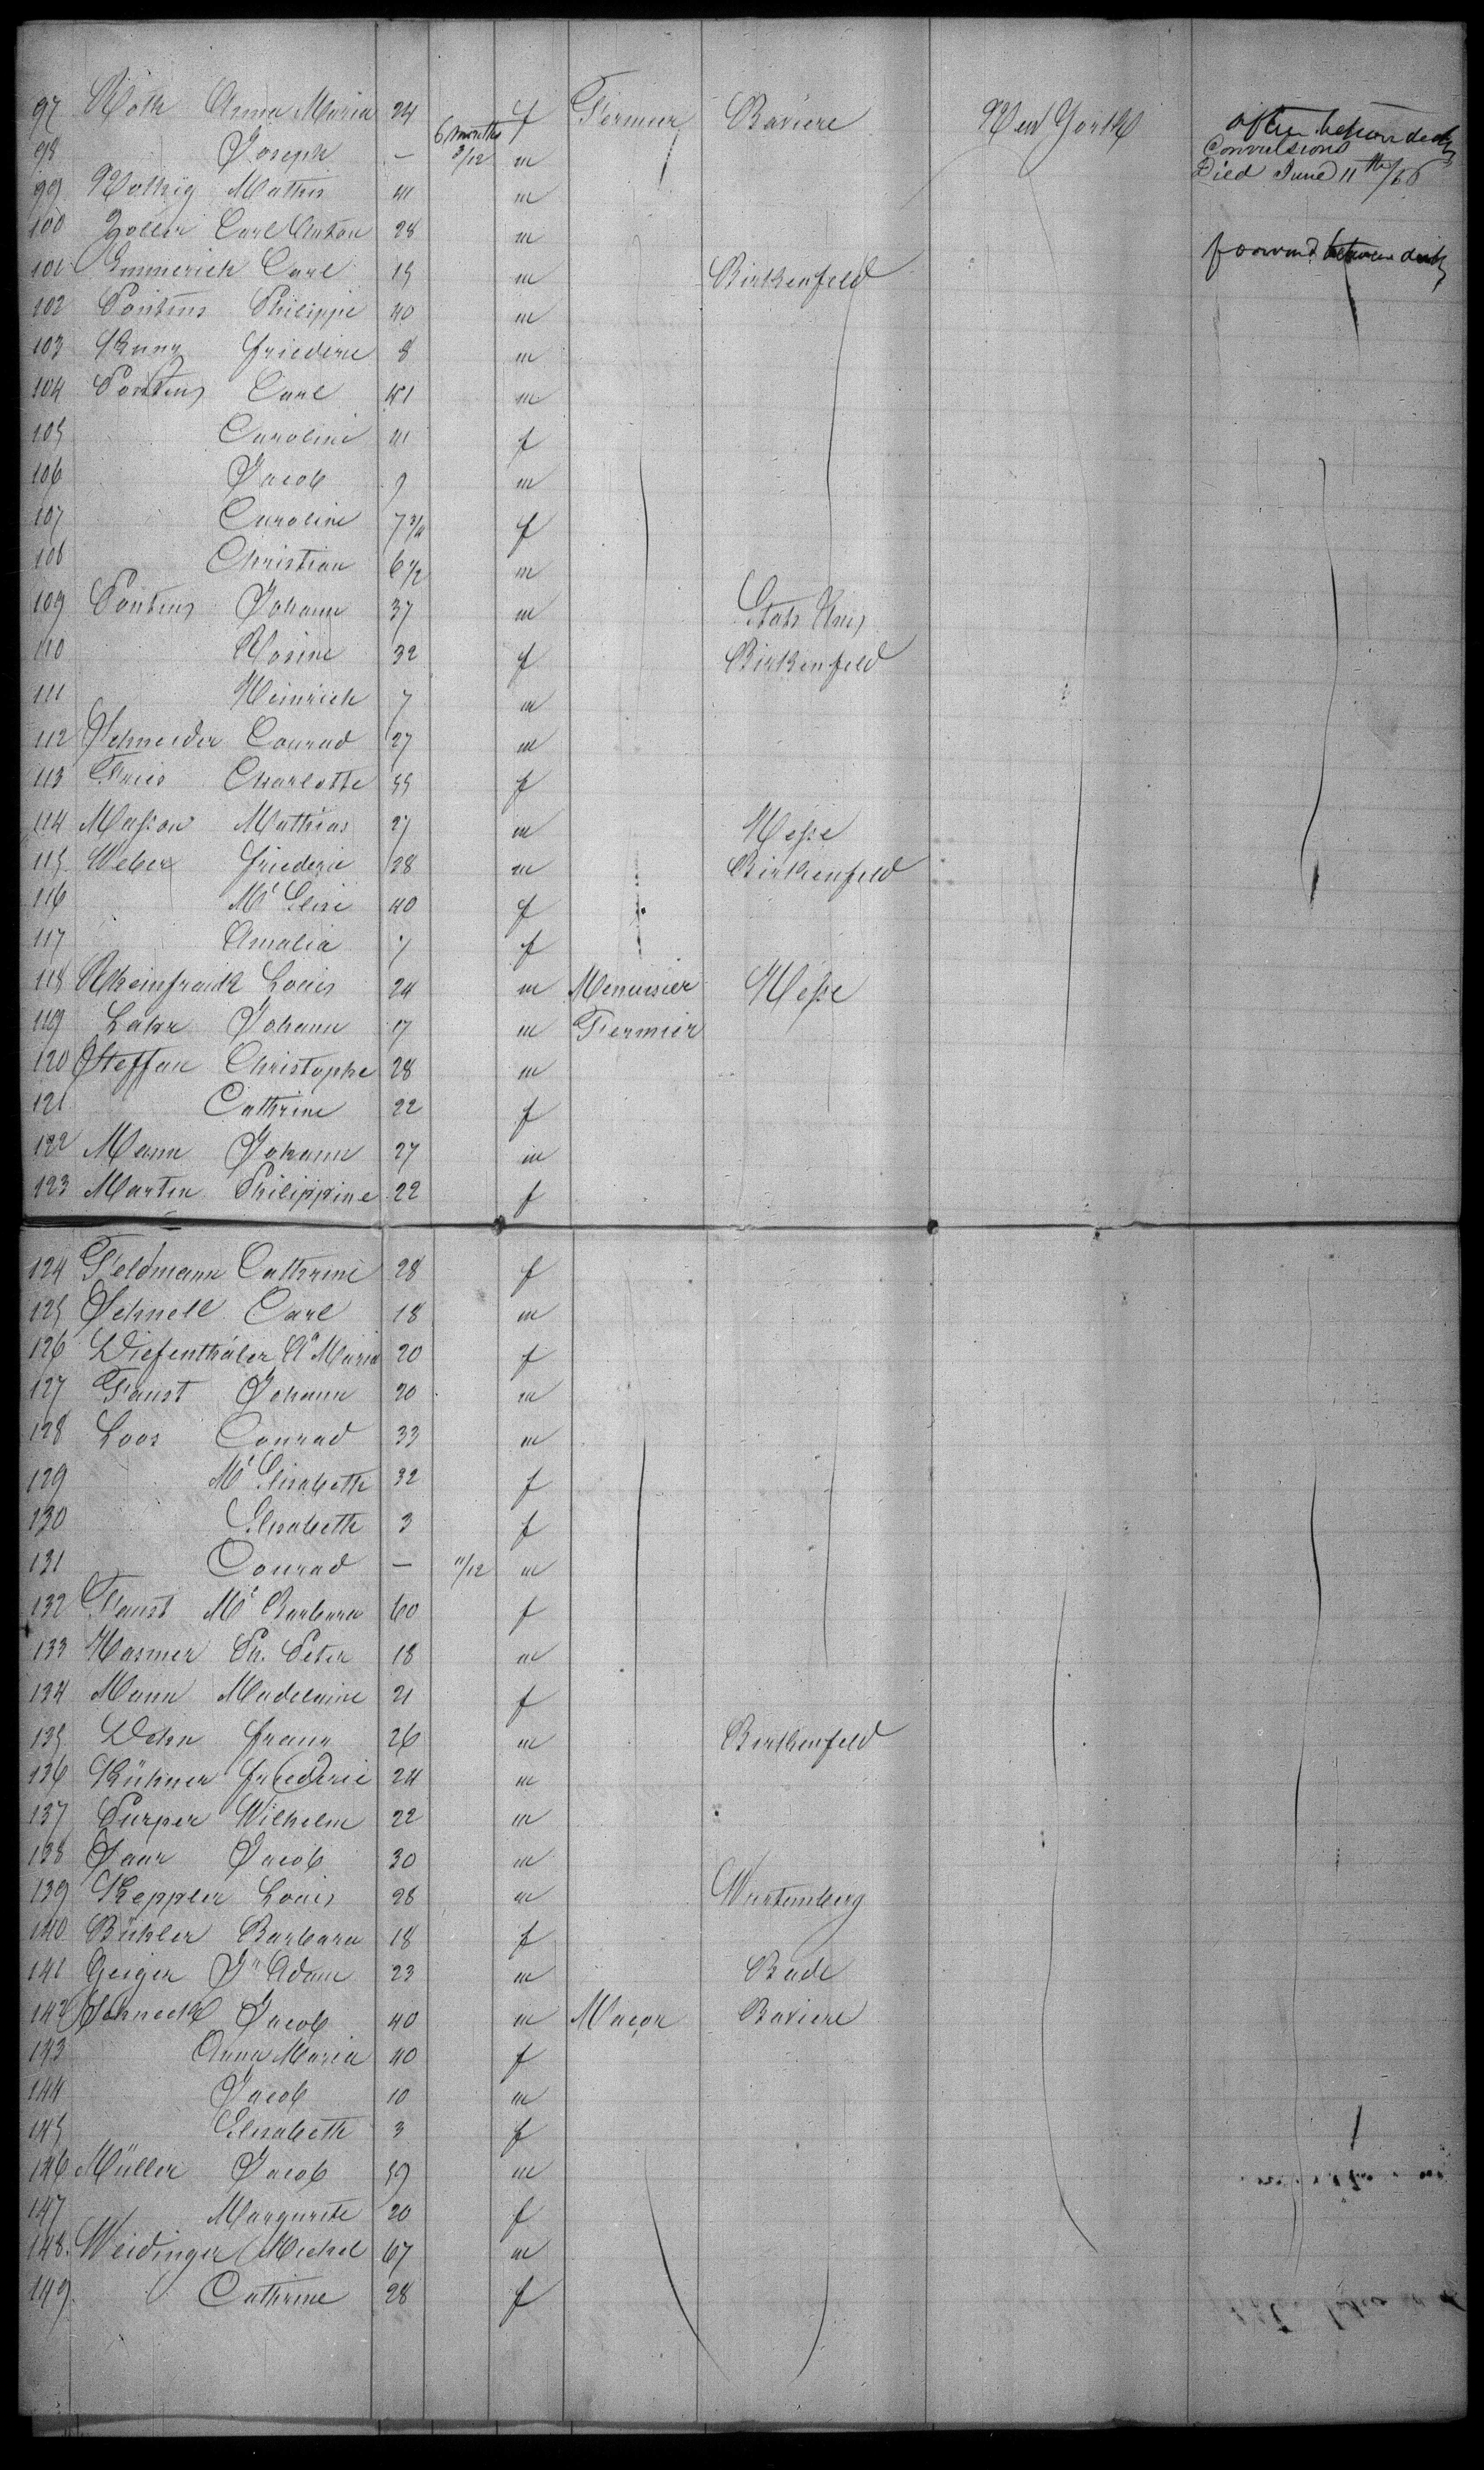 97 Roth Anna Maria 24 f Fermier Baviere New York after between decks
98 Joseph — 6 months 8/12 m Convulsions
Died June 11th/66
99 Mathis 41 m
100 Zoller Carl Anton 28 m
101 Emmerich Carl 15 m Birkenfeld forward between decks
102 Pontius Philippe 40 m
103 Kunz Friederic 8 m
104 Pontius Carl 41 m
105 Caroline 41 f
106 Jacob 9 m
107 Caroline 7 3/4 f
108 Christian 6 1/2 m
109 Pontius Johann 37 m Etats Unis
110 Rosine 32 f Birkenfeld
111 Heinrich 7 m
112 Schneider Conrad 27 m
113 Fries Charlotte 55 f
114 Masson Mathias 27 m Hesse
115 Weber Friederic 28 m Birkenfeld
116 Me Elise 40 f
117 Amalia 7 f
118 Louis 24 m Menuisier Hesse
119 Lahr Johann 17 m Fermier
120 Steffan Christophe 28 m
121 Cathrine 22 f
122 Mann Johann 27 m
123 Martin Philippine 22 f
124 Feldmann Cathrine 28 f
125 Schnell Carl 18 m
126 Diefenthäler Aa Maria 20 f
127 Faust Johann 20 m
128 Loos Conrad 33 m
129 Me Elisabeth 32 f
130 Elisabeth 3 f
131 Conrad — 11/12 m
132 Faust Me Barbara 60 f
133 Hasmer Ph. Peter 18 m
134 Mann Madelaine 21 f
135 Dehn Franz 26 m Birkenfeld
136 Kühner Friederic 24 m
137 Purper Wilhelm 22 m
138 Saar Jacob 30 m
139 Keppler Louis 28 m Wurtemberg
140 Bühler Barbara 18 f
141 Geiger Jn Adam 23 m Bade
142 Schneck Jacob 40 m Maçon Baviere
143 Anna Maria 40 f
144 Jacob 10 m
145 Elisabeth 3 f
146 Müller Jacob 59 m
147 Marguerite 20 f
148. Weidinger Michel 67 m
149. Cathrine 28 f